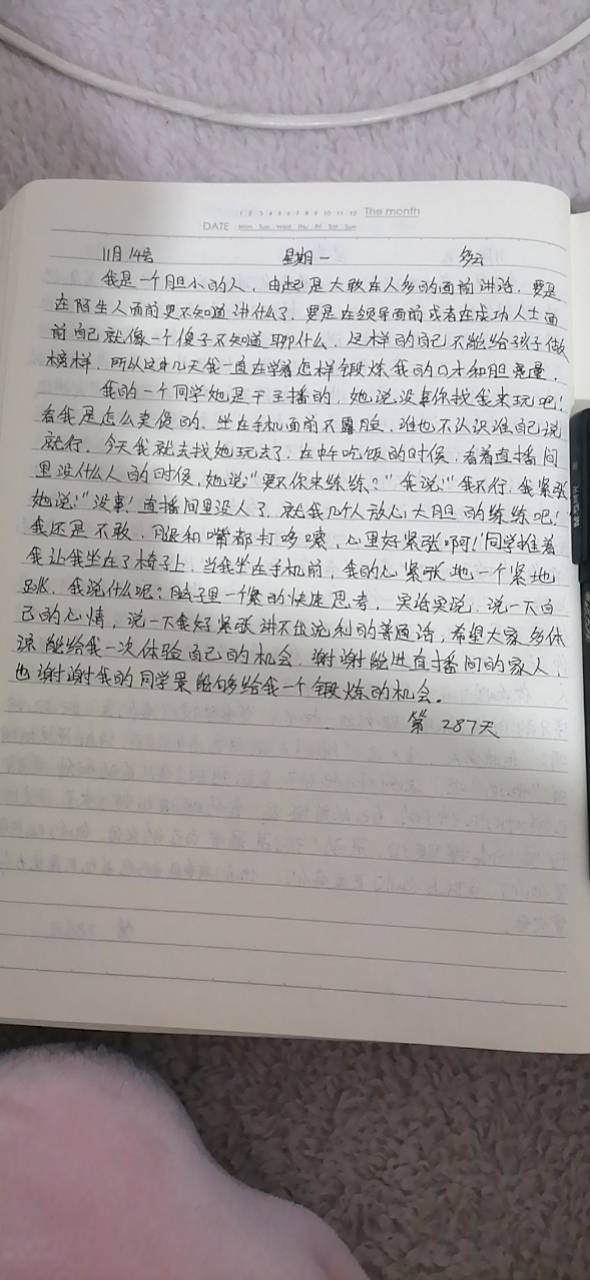 1 2 3 4 5 6 7 8 9 10 11 12 The month
DATE Mon Tue Wed Thu Fri Sat Sun
11月14号 星期一 多云
我是一个胆小的人,由其是大敢在人多的面前讲话,要是
在陌生人面前更不知道讲什么了,要是在领导面前或者在成功人士面
前自己就像一个傻子不知道聊什么,这样的自己不能给孩子做
榜样,所以这几天我一直在学着怎样锻炼我的口才和胆量,
我的一个同学她是干主播的,她说没事你找我来玩吧!
看我是怎么卖货的,坐在手机面前不露脸,谁也不认识谁自己说
就行,今天我就去找她玩去了,在中午吃饭的时候,看着直播间
里没什么人的时候,她说:“要不你来练练?”我说:“我不行,我紧张
她说:“没事!直播间里没人了,就我几个人放心大胆的练练吧!
我还是不敢,腿和嘴都打哆嗦,心里好紧张啊!同学推着
我让我坐在了椅子上,当我坐在手机前,我的心紧张地一个紧地
跳,我说什么呢?脑子里一个紧的快速思考,实话实说,说一下自
己的心情,说一下我好紧张讲不出流利的普通话,希望大家多体
谅能给我一次体验自己的机会,谢谢能进直播间的家人,
也谢谢我的同学能够给我一个锻炼的机会。
第 287天